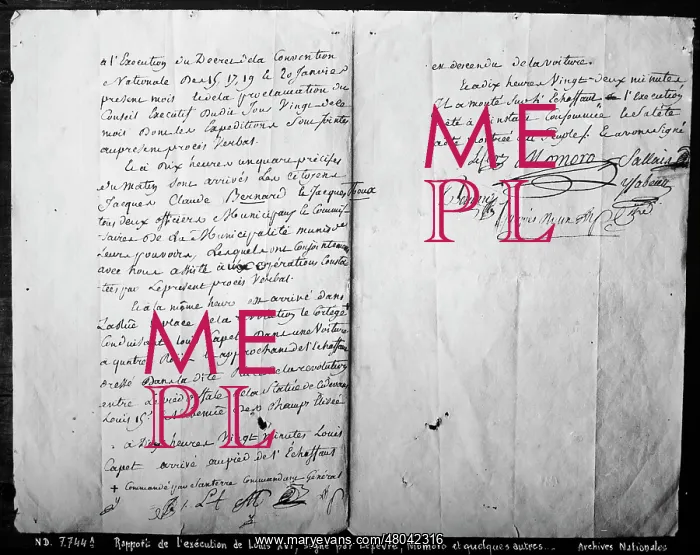 à l'Execution du Decret de la Convention
Nationale Des 15, 17, 19 et 20 Janvier
présent mois et de la proclamation du
Conseil Executif du dit Jour Vingt de ce
mois Dont les Expeditions Sont jointes
au present procès Verbal.
Et à Dix heures un quart précises
du Matin Sont arrivés Les citoyens
Jacques Claude Bernard et Jacques Roux
tous deux officiers Municipaux et Commis-
saires De La Municipalité munis de
Leurs pouvoirs, Lesquels ont Conjointement
avec nous assisté à opérations Consta-
tées par Le present procès Verbal.
Et à la même heure est arrivé dans
La dite place de la révolution Le Cortège
Conduisant Louis Capet Dans une Voiture
à quatre Roues approchant de l'Echaffaut
dressé Dans la Dite place de la révolution
entre le pied d'estale de la Statue de Cidevant
Louis 15 Des champs Elisés
à Dix heures Vingt minutes Louis
Capet arrivé au pied de l'Echaffaut
+ Commandé par Santerre Commandant Général
est descendu de la voiture.
Et à dix heures Vingt-deux minutes
Il a monté Sur L'Echaffaut l'Execution
a été à l'instant Consommée et Sa tête
a été montrée au Peuple. Et avons signé
Lefevre Momoro Sallais
Isabeau
ME
PL
ME
PL
www.maryevans.com/48042316
ND. 7.744A Rapport de l'exécution de Louis XVI, signé par Lefèvre, Momoro et quelques autres... Archives Nationales